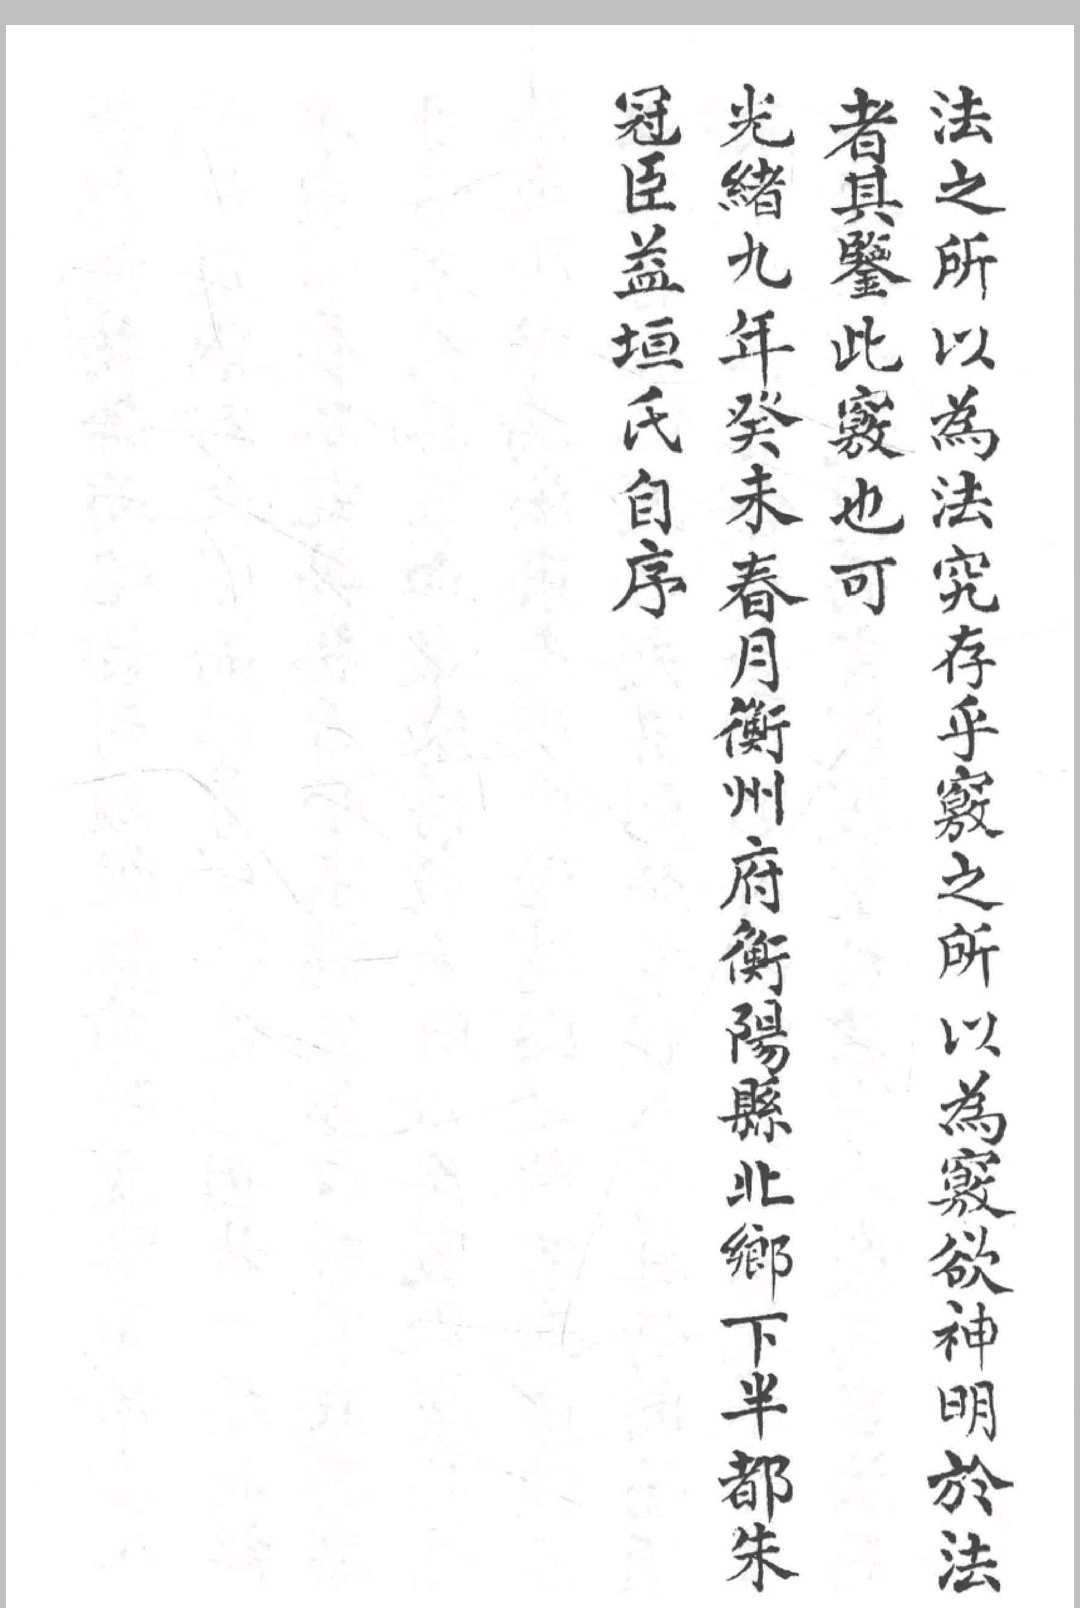 法之所以為法究存乎竅之所以為竅欲神明於法
者其鑒此竅也可
光緒九年癸未春月衡州府衡陽縣北鄉下半都朱
冠臣益垣氏自序